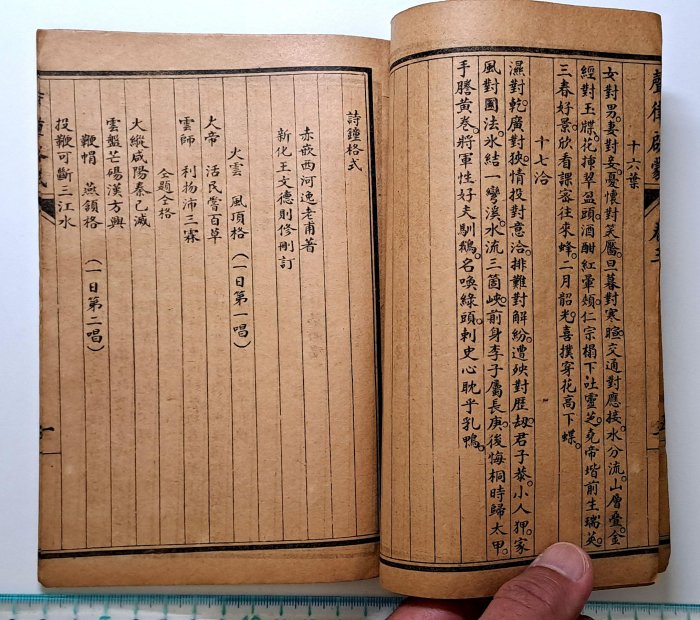 聲律啟蒙 卷三
十六葉
女對男。妻對妾。憂懷對笑靨。旦暮對寒暄。交通對應接。水分流。山層疊。金
經對玉牒。花揀翠盈頭。酒酣紅暈頰。仁宗榻下吐靈芝。堯帝堦前生瑞莢。
三春好景。欣看課蜜往來蜂。二月韶光。喜撲穿花高下蝶。
十七洽
濕對乾。廣對狹。情投對意洽。排難對解紛。遭殃對歷劫。君子恭。小人狎。家
風對國法。氷結一彎溪。水流三箇峽。前身李子屬長庚。後悔桐時歸太甲。
手謄黃卷。將軍性好夫馴鵝。名喚綠頭。刺史心耽乎乳鴨。
詩鐘格式
赤嵌西河逸老甫著
新化王文德則修刪訂
火雲 風頂格 (一日第一唱)
大帝 活民嘗百草
雲師 利物沛三霖
仝題仝格
火縱咸陽秦已滅
雲盤芒碭漢方興
鞭帽 燕頷格 (一日第二唱)
投鞭可斷三江水